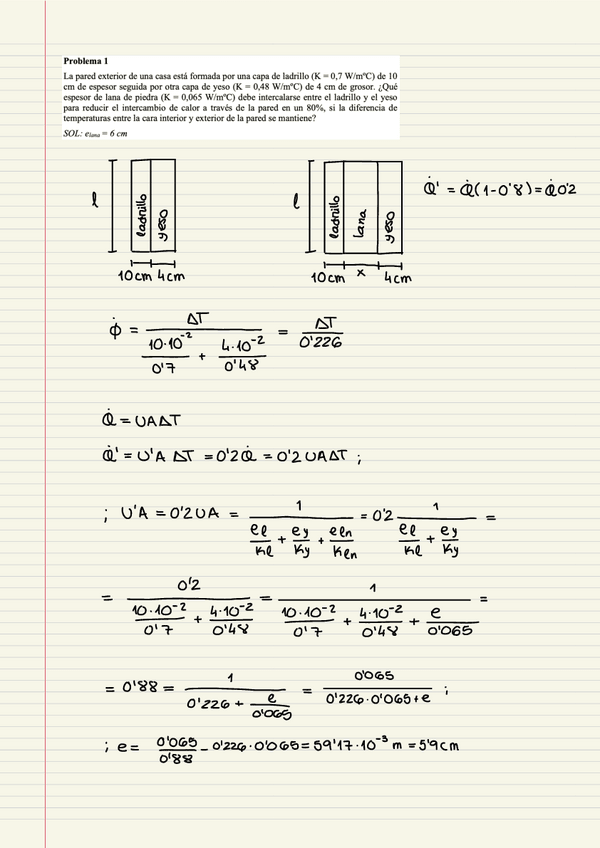 Problema 1
La pared exterior de una casa está formada por una capa de ladrillo (K = 0,7 W/mºC) de 10
cm de espesor seguida por otra capa de yeso (K = 0,48 W/mºC) de 4 cm de grosor. ¿Qué
espesor de lana de piedra (K = 0,065 W/mºC) debe intercalarse entre el ladrillo y el yeso
para reducir el intercambio de calor a través de la pared en un 80%, si la diferencia de
temperaturas entre la cara interior y exterior de la pared se mantiene?
SOL: e_lana = 6 cm
l ladrillo yeso
10cm 4cm
l ladrillo lana yeso
10cm x 4cm
Q̇' = Q̇(1-0'8) = Q̇0'2
ϕ̇ = ΔT / (10·10⁻²/0'7 + 4·10⁻²/0'48) = ΔT/0'226
Q̇ = UAΔT
Q̇' = U'A ΔT = 0'2Q̇ = 0'2UAΔT ;
; U'A = 0'2UA = 1 / (el/Kl + ey/Ky + eln/Kln) = 0'2 1 / (el/Kl + ey/Ky) =
= 0'2 / (10·10⁻²/0'7 + 4·10⁻²/0'48) = 1 / (10·10⁻²/0'7 + 4·10⁻²/0'48 + e/0'065) =
= 0'88 = 1 / (0'226 + e/0'065) = 0'065 / (0'226·0'065+e) ;
; e = 0'065/0'88 - 0'226·0'065 = 59'17·10⁻³ m = 5'9cm